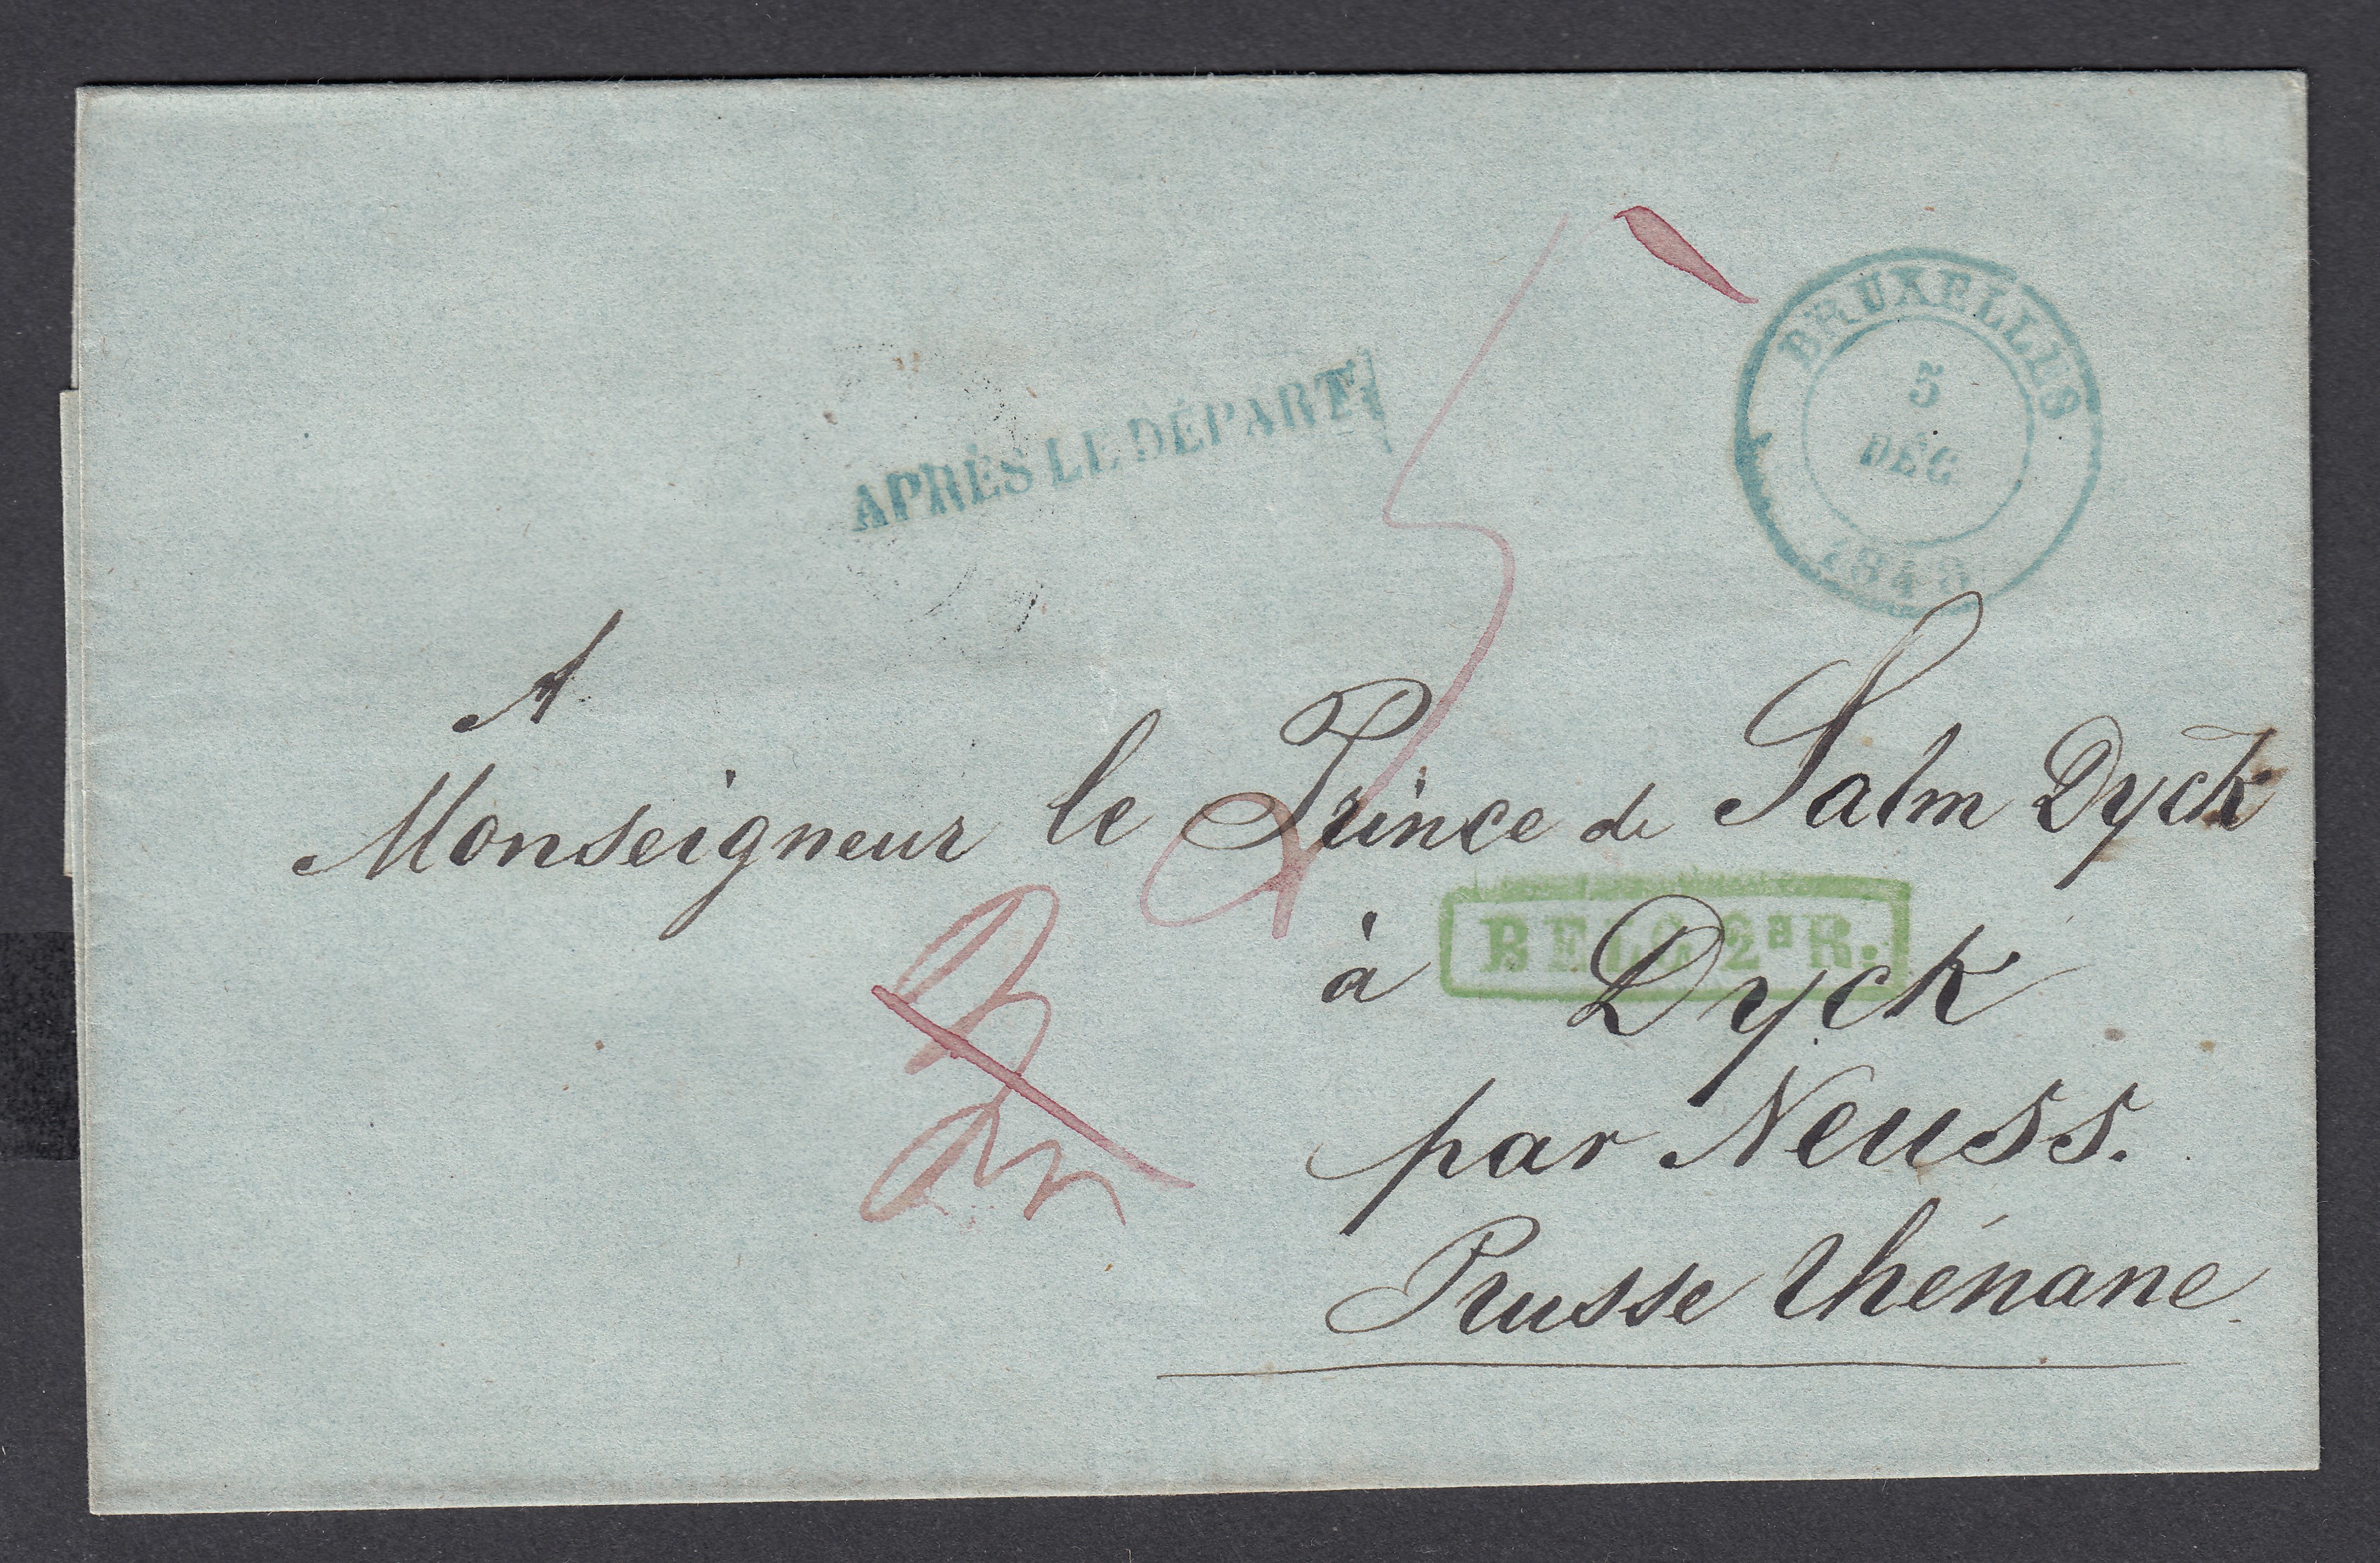 BRUXELLES
5
DÉC
1848
APRÈS LE DÉPART
A
Monseigneur le Prince de Salm Dyck
BELG. 2ª R.
à Dyck
par Neuss.
Prusse rhénane